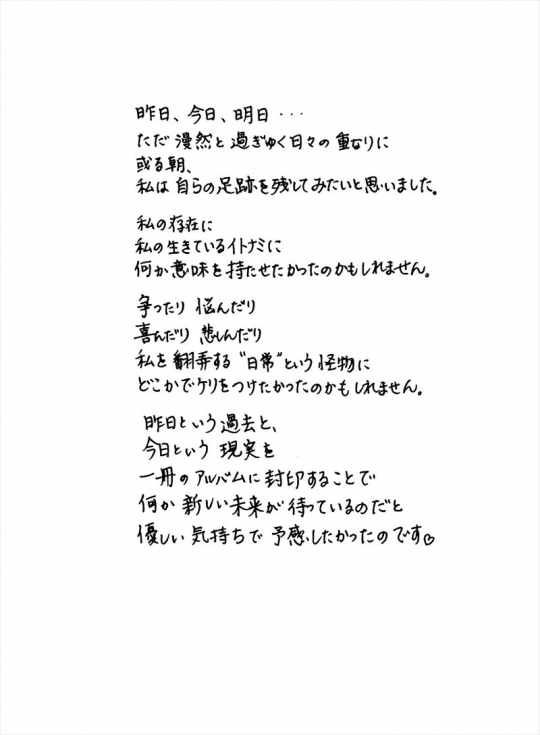 昨日、今日、明日・・・
ただ 漫然と 過ぎゆく日々の 重なりに
或る朝、
私は 自らの足跡を残してみたいと思いました。
私の存在に
私の生きているイトナミに
何か意味を持たせたかったのかもしれません。
争ったり 悩んだり
喜んだり 悲しんだり
私を 翻弄する “日常”という 怪物に
どこかでケリをつけたかったのかもしれません。
昨日という過去と、
今日という 現実を
一冊の アルバムに 封印することで
何か 新しい未来が 待っているのだと
優しい 気持ちで 予感したかったのです♡